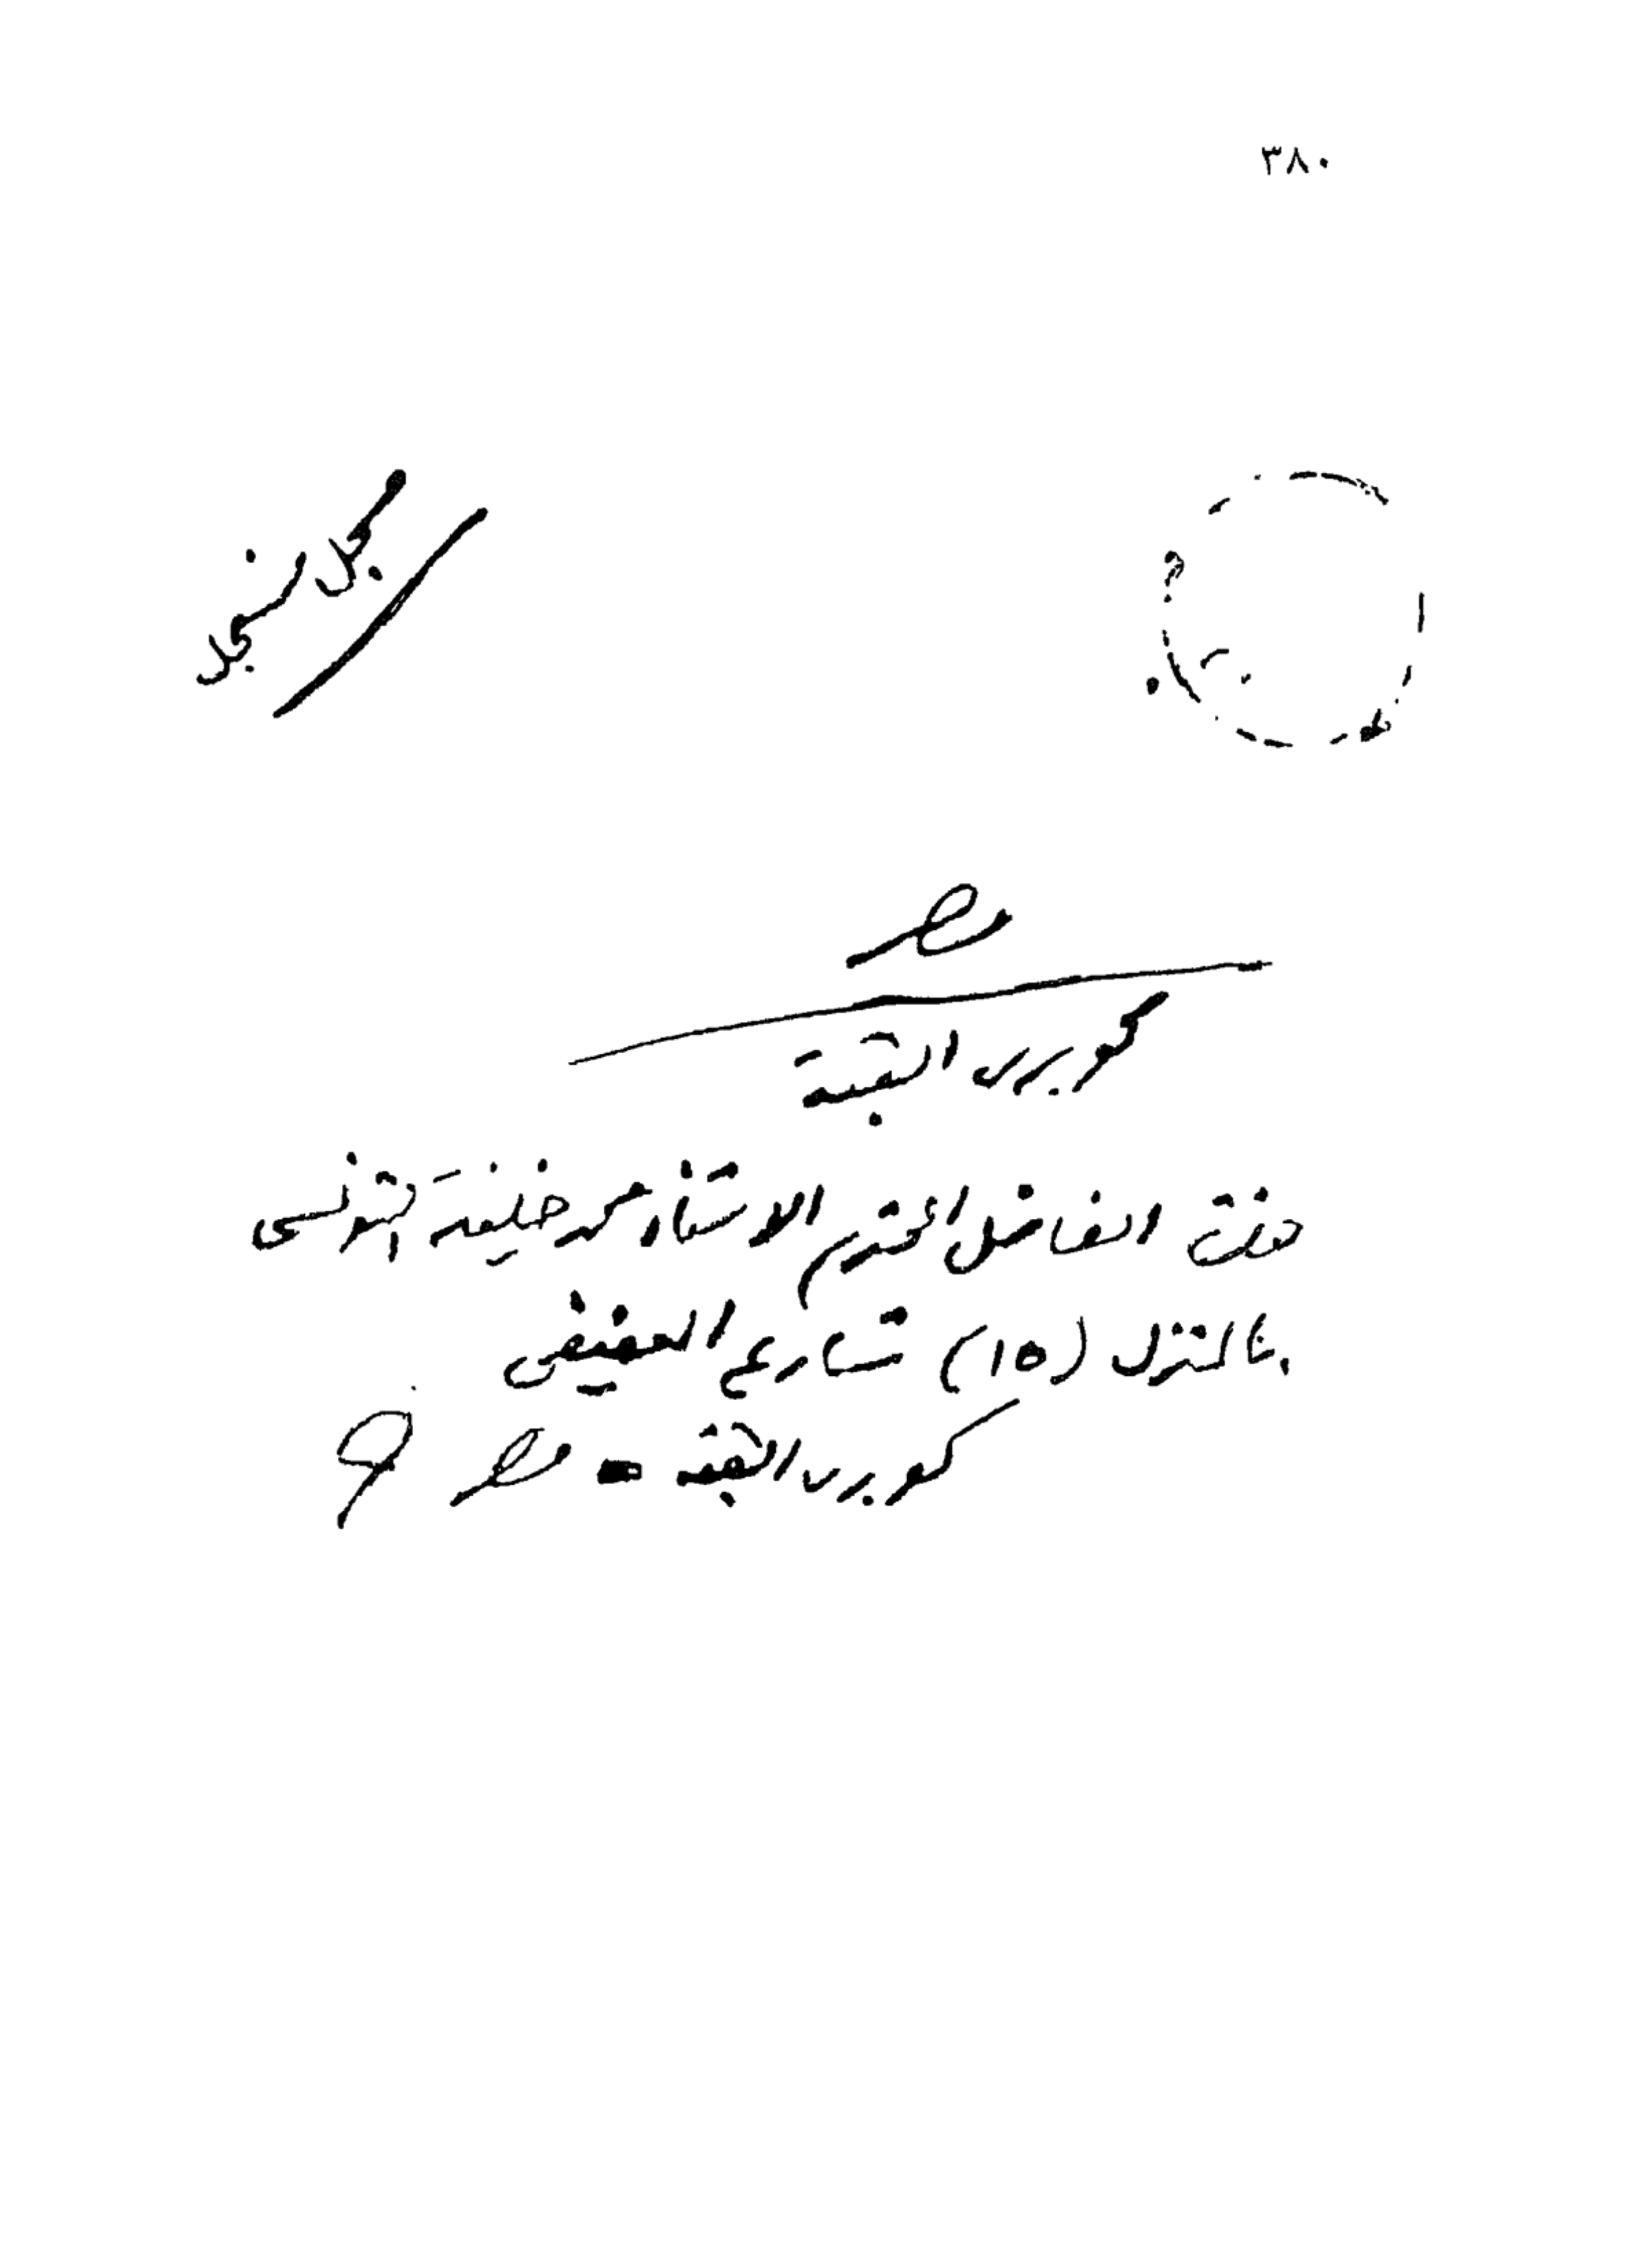 ٣٨٠
مستعجل
مصر
كوبرى القبة
حضرة الفاضل المحترم الاستاذ محمد خليفة التونسى
بالمنزل (١٥) شارع العفيفى
كوبرى القبة = مصر